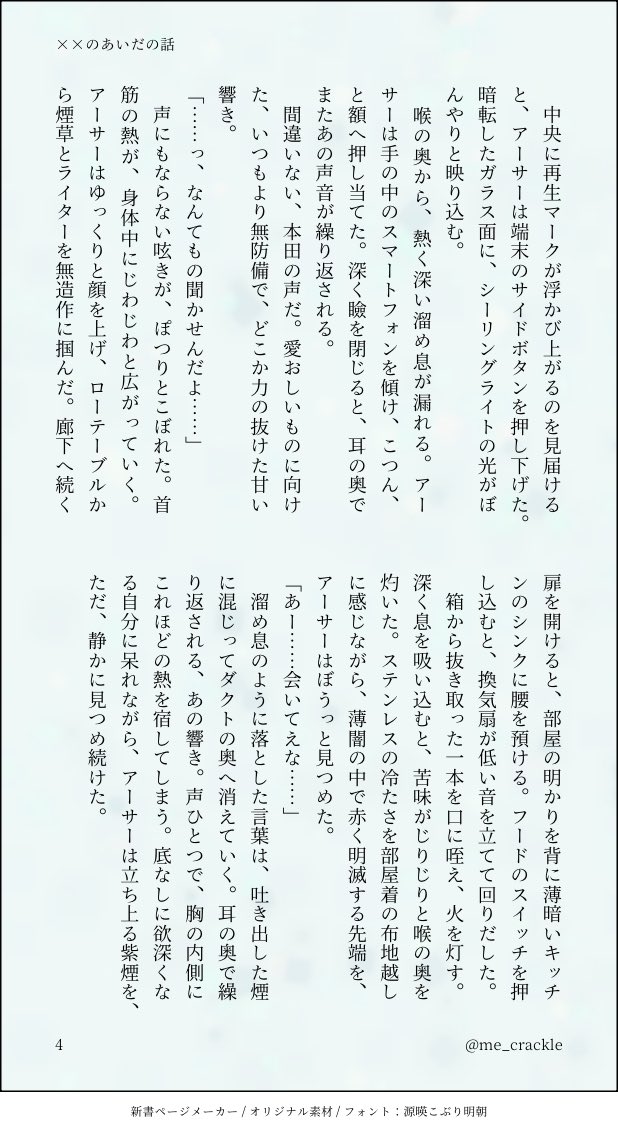 ××のあいだの話
　中央に再生マークが浮かび上がるのを見届ける
と、アーサーは端末のサイドボタンを押し下げた。
暗転したガラス面に、シーリングライトの光がぼ
んやりと映り込む。
　喉の奥から、熱く深い溜め息が漏れる。アー
サーは手の中のスマートフォンを傾け、こつん、
と額へ押し当てた。深く瞼を閉じると、耳の奥で
またあの声音が繰り返される。
　間違いない、本田の声だ。愛おしいものに向け
た、いつもより無防備で、どこか力の抜けた甘い
響き。
「……っ、なんてもの聞かせんだよ……」
　声にもならない呟きが、ぽつりとこぼれた。首
筋の熱が、身体中にじわじわと広がっていく。
アーサーはゆっくりと顔を上げ、ローテーブルか
ら煙草とライターを無造作に掴んだ。廊下へ続く
扉を開けると、部屋の明かりを背に薄暗いキッチ
ンのシンクに腰を預ける。フードのスイッチを押
し込むと、換気扇が低い音を立てて回りだした。
　箱から抜き取った一本を口に咥え、火を灯す。
深く息を吸い込むと、苦味がじりじりと喉の奥を
灼いた。ステンレスの冷たさを部屋着の布地越し
に感じながら、薄闇の中で赤く明滅する先端を、
アーサーはぼうっと見つめた。
「あー……会いてえな……」
　溜め息のように落とした言葉は、吐き出した煙
に混じってダクトの奥へ消えていく。耳の奥で繰
り返される、あの響き。声ひとつで、胸の内側に
これほどの熱を宿してしまう。底なしに欲深くな
る自分に呆れながら、アーサーは立ち上る紫煙を、
ただ、静かに見つめ続けた。
4
@me_crackle
新書ページメーカー / オリジナル素材 / フォント：源暎こぶり明朝